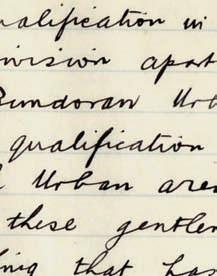 ualification in
ivision apart
Bundoran Urb
qualification
Urban area
these gentlem
ing that has